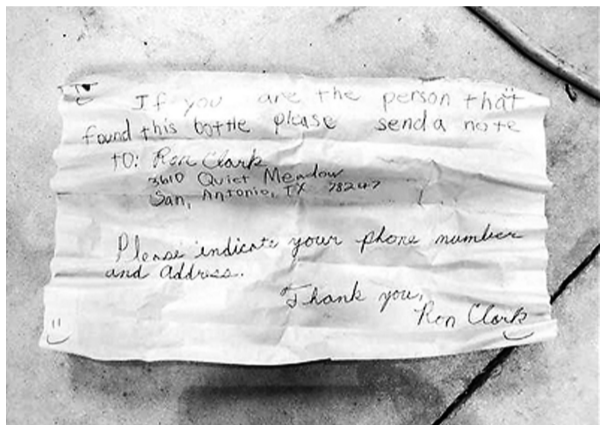 If you are the person that
found this bottle please send a note
to: Ron Clark
3610 Quiet Meadow
San, Antonio, TX 78247
Please indicate your phone number
and address.
Thank you,
Ron Clark